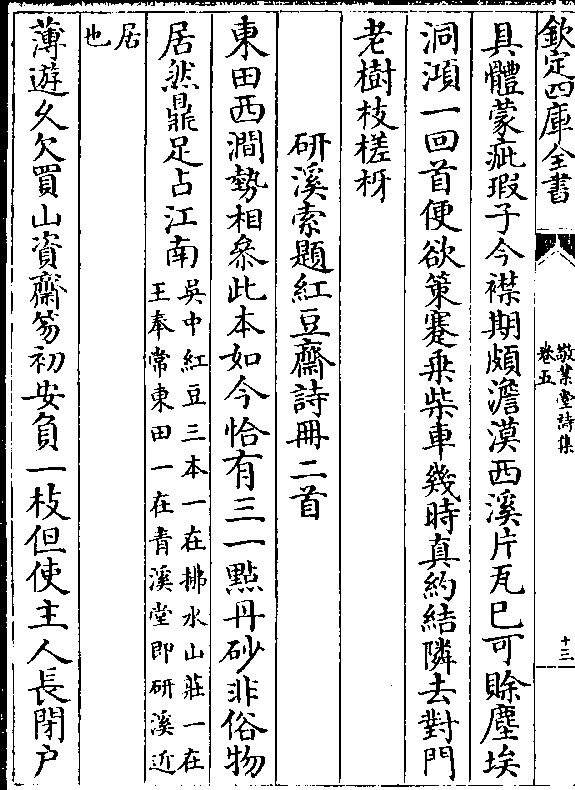 欽定四庫全書
敬業堂詩集
卷五
十三
具體蒙疵瑕子今襟期頗澹漠西溪片瓦已可賒塵埃
洞澒一回首便欲策蹇乗柴車幾時真約結隣去對門
老樹枝槎枒
研溪索題紅豆齋詩冊二首
東田西澗勢相叅此本如今恰有三一㸃丹砂非俗物
居然鼎足占江南
吳中紅豆三本一在拂水山莊一在
王奉常東田一在青溪堂即研溪近
居
也
薄遊久欠買山資齋牓初安負一枝但使主人長閉户